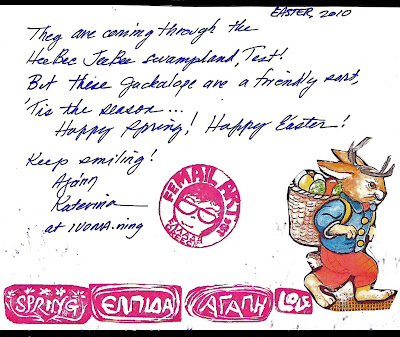 EASTER, 2010
They are coming through the
HeeBee JeeBee swampland, Test!
But these Jackalope are a friendly sort,
'Tis the season...
Happy Spring! Happy Easter!
Keep smiling!
Katerina
at IUOMA.ning
FEMAIL ART
SPRING ΕΛΠΙΔΑ ΑΓΑΠΗ LOVE